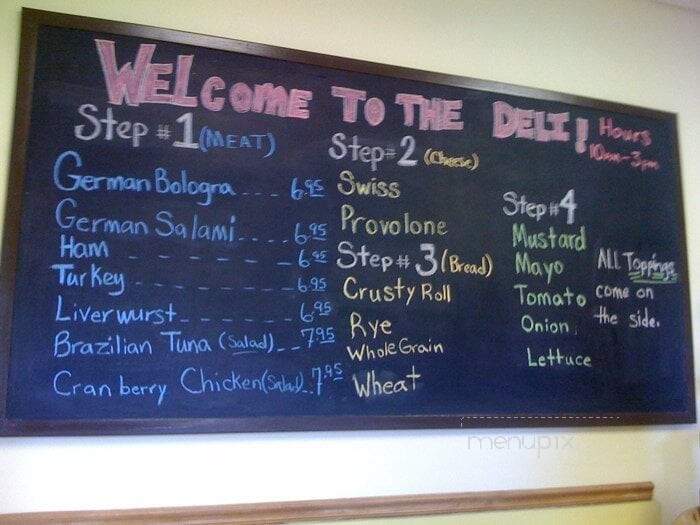 WELCOME TO THE DELI!
Hours
10am-3pm
Step #1 (MEAT)
German Bologna ---- 6.95
German Salami ---- 6.95
Ham - - - - - - 6.95
Turkey - - - - - - 6.95
Liverwurst - - - - - 6.95
Brazilian Tuna (Salad) -- 7.95
Cranberry Chicken (Salad) -- 7.95
Step #2 (Cheese)
Swiss
Provolone
Step #3 (Bread)
Crusty Roll
Rye
Whole Grain
Wheat
Step #4
Mustard
Mayo
Tomato
Onion
Lettuce
ALL Toppings
come on
the side.
menupix